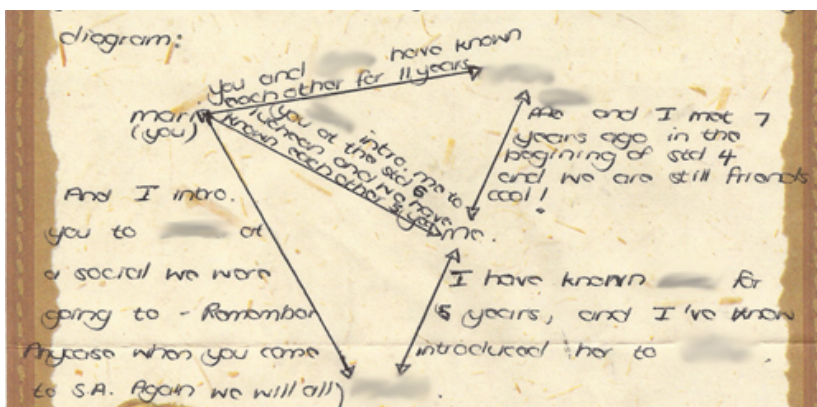 diagram:
you and have known
each other for 11 years
mari
(you)
intro. me to
you at the std 6
luncheon and we have
known each other 5 years
me.
and I met 7
years ago in the
begining of std 4
and we are still friends
cool!
And I intro.
you to at
a social we were
going to - Remember
Anycase when you come
to S.A. Again we will all)
I have known for
5 years, and I've know
introduced her to .